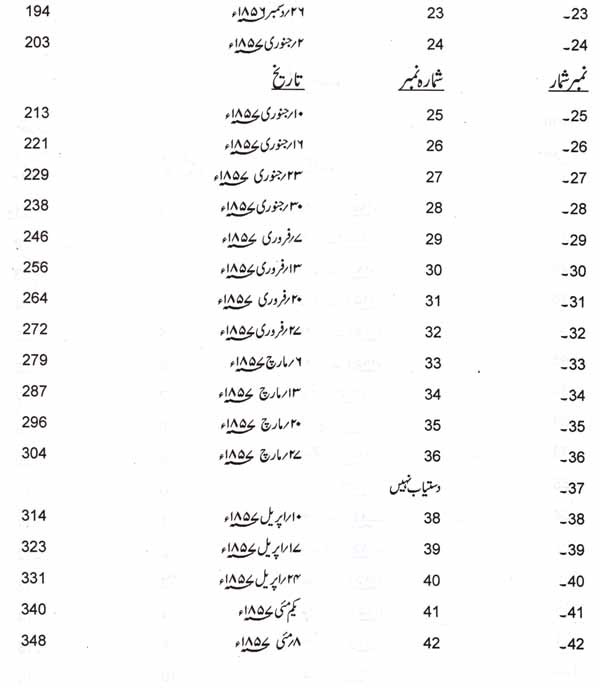 23۔ 23 ۲۶؍دسمبر ۱۸۵۶ء 194
24۔ 24 ۲؍جنوری ۱۸۵۷ء 203
نمبر شمار شمارہ نمبر تاریخ
25۔ 25 ۱۰؍جنوری ۱۸۵۷ء 213
26۔ 26 ۱۶؍جنوری ۱۸۵۷ء 221
27۔ 27 ۲۳؍جنوری ۱۸۵۷ء 229
28۔ 28 ۳۰؍جنوری ۱۸۵۷ء 238
29۔ 29 ۷؍فروری ۱۸۵۷ء 246
30۔ 30 ۱۳؍فروری ۱۸۵۷ء 256
31۔ 31 ۲۰؍فروری ۱۸۵۷ء 264
32۔ 32 ۲۷؍فروری ۱۸۵۷ء 272
33۔ 33 ۶؍مارچ ۱۸۵۷ء 279
34۔ 34 ۱۳؍مارچ ۱۸۵۷ء 287
35۔ 35 ۲۰؍مارچ ۱۸۵۷ء 296
36۔ 36 ۲۷؍مارچ ۱۸۵۷ء 304
37۔ دستیاب نہیں
38۔ 38 ۱۰؍اپریل ۱۸۵۷ء 314
39۔ 39 ۱۷؍اپریل ۱۸۵۷ء 323
40۔ 40 ۲۴؍اپریل ۱۸۵۷ء 331
41۔ 41 یکم مئی ۱۸۵۷ء 340
42۔ 42 ۸؍مئی ۱۸۵۷ء 348